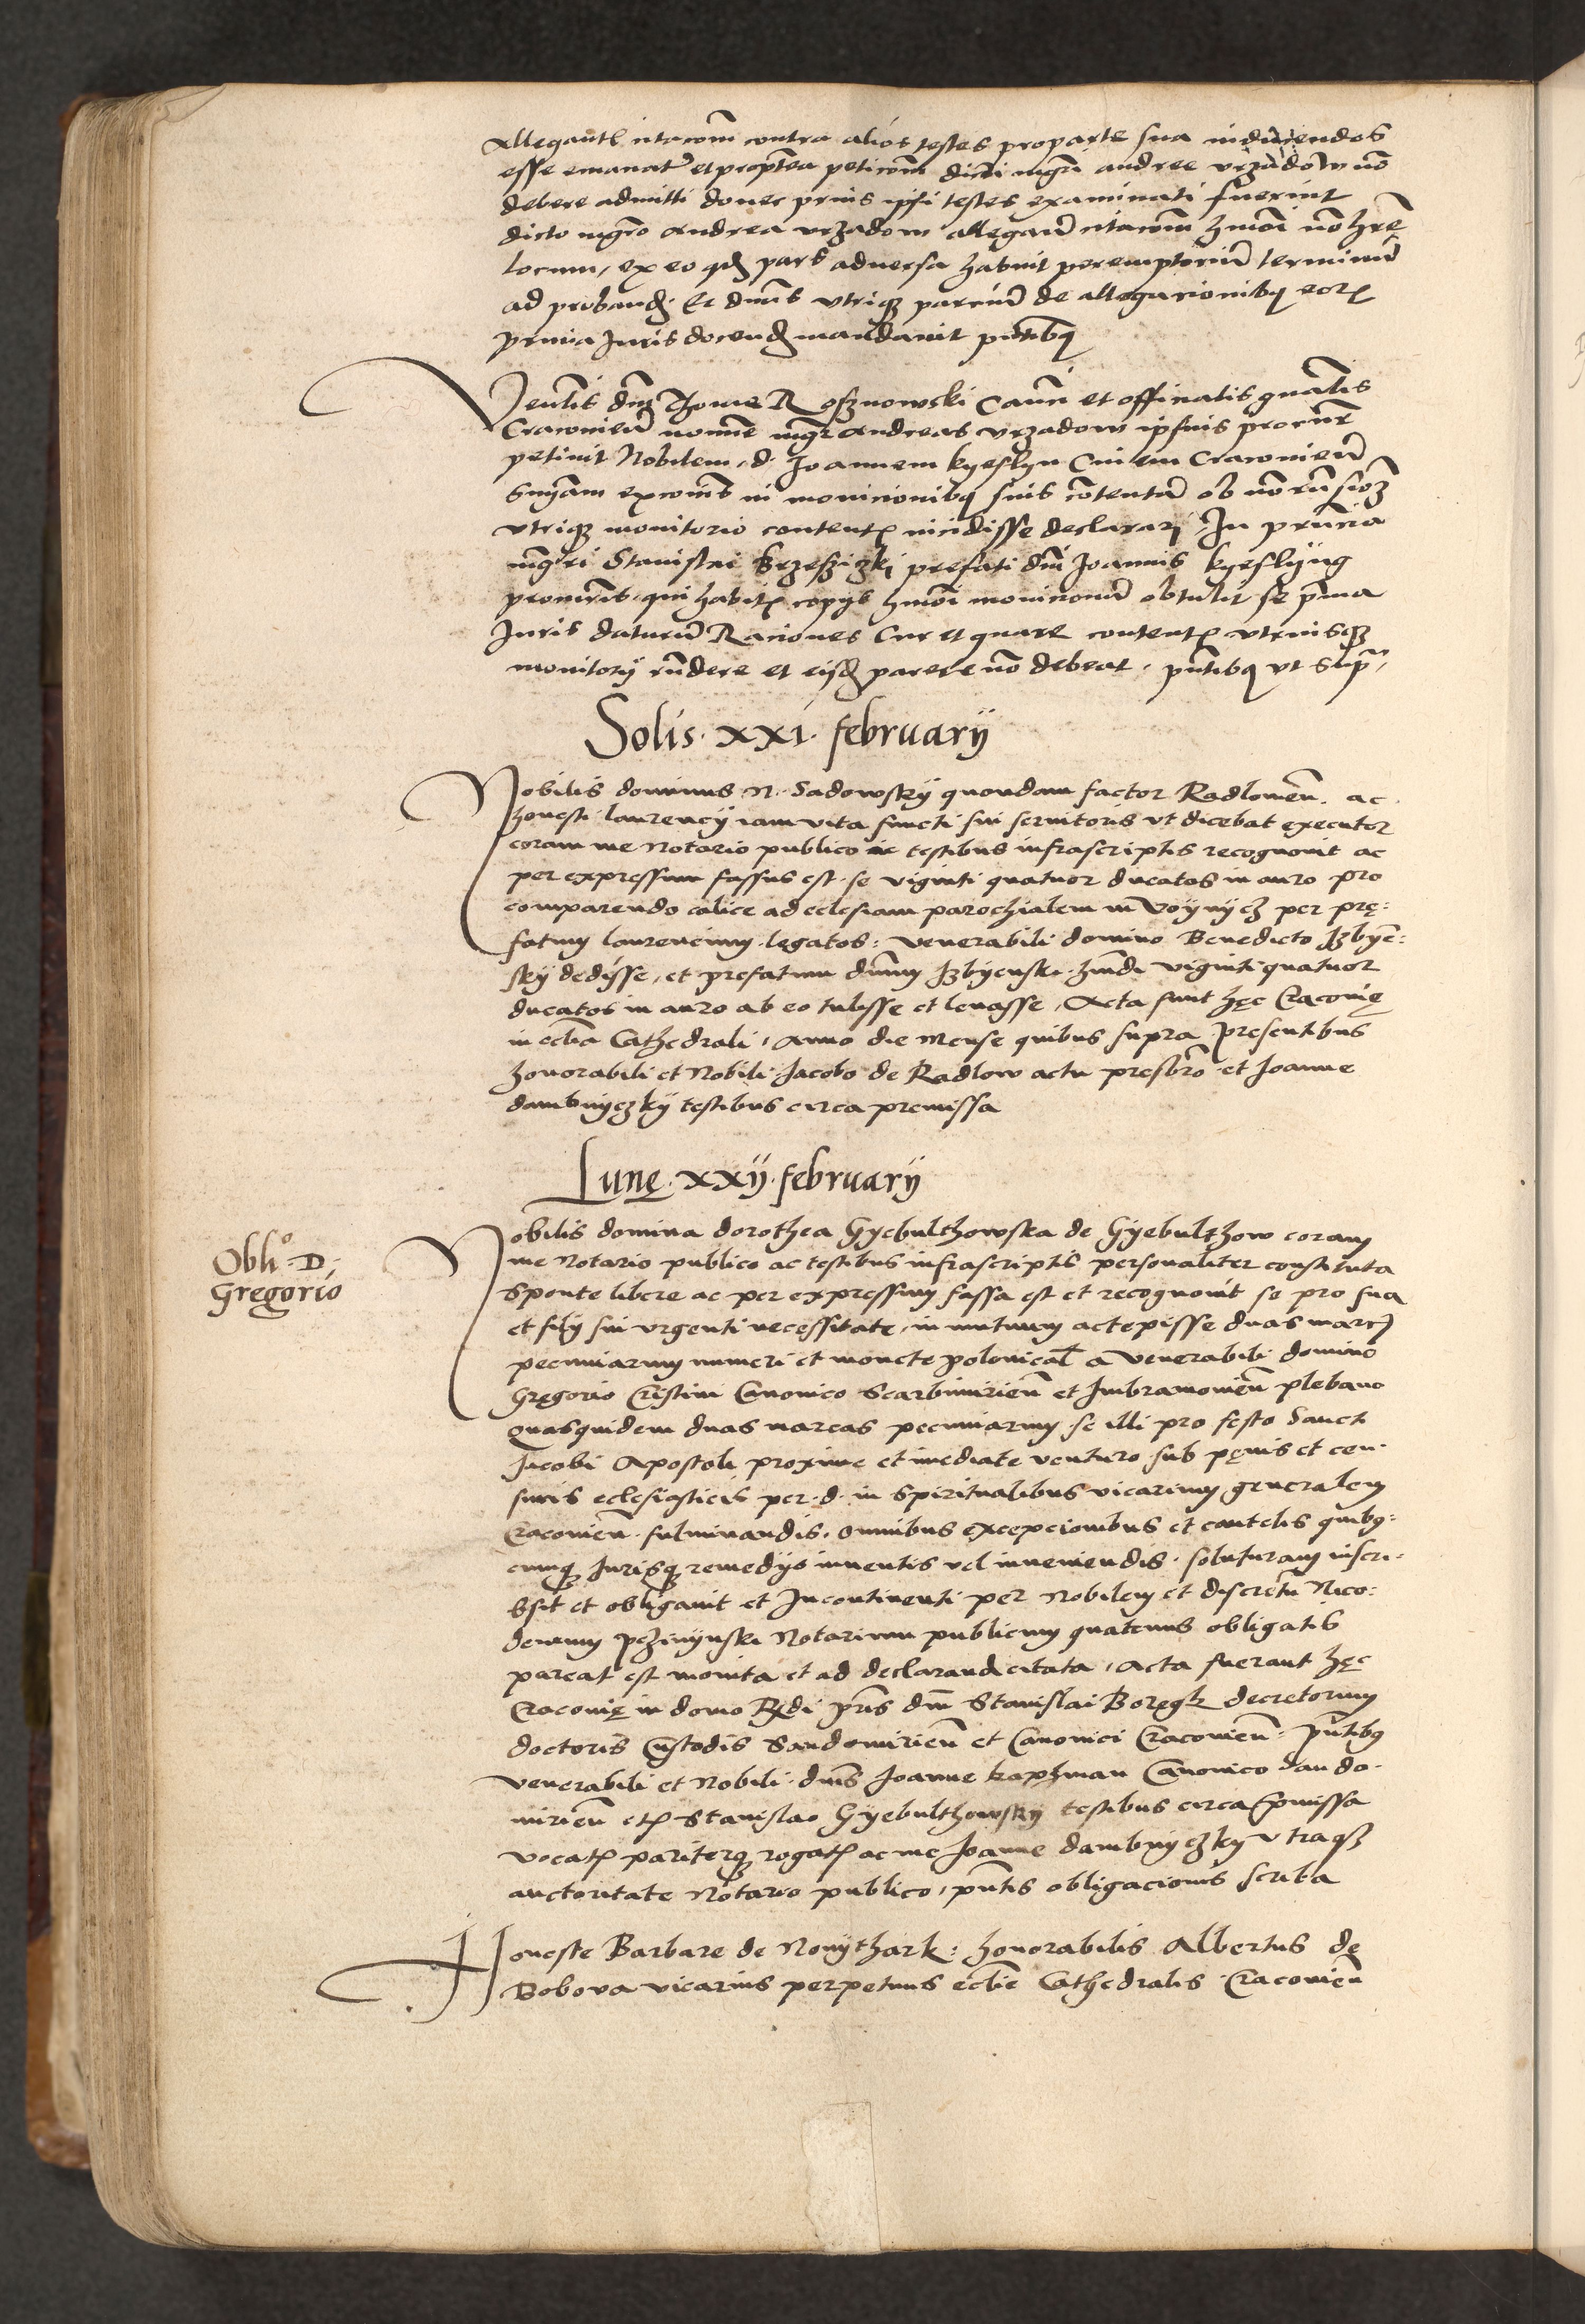 Allegantẽ citacom̃ contra alios testes pro parte sua inducendos
esse emanatã et propterea peticom̃ dicti mgrĩ andree vrzadow nõ
debere admitti donec prius ipsi testes examinati fuerint
dicto mgrõ Andrea vrzadow allegantẽ citacom̃ hmõi nõ hrẽ
locum, ex eo qd pars adversa habuit peremptoriũ terminũ
ad proband. Et dnũs vtriqз parciũ de allegacionibq eorz
Juris docend mandavit pñtibq
Venlis dnĩ Thome Rosznowski Canci et officialis gnãlis
Cracovieñ nomine mgr Andreas vrzadow ipsius procur̃
petivit Nobilem d. Joannem kyeslyn Civem Cracovieñ
in monicionibq suis contentam ob nõ
vtriqз monitorio content incidisse declarari In pñcia
mgri Stanislai Brzeszizkj prefati dnĩ Joannis kyeslyng
procuris. qui habitz copijs hmõi monicionũ obtulit se
Juris daturũ Raciones Cur et quare content vtriusqз
monitorij rñdere et eisd parere nõ debeat. pñtibq vt supra
Solis. xxi. february
Nobilis dominus N. Sadowsky quondam factor Radlovieñ. ac
honesti laurencij iam vita functi sui servitoris vt dicebat executor
coram me Notario publico ac testibus infrascriptis recognovit ac
per expressum fassus est. se viginti quatuor ducatos in auro pro
comparendo calice ad eclesiam parochialem in Voynycz per pre:
fatum laurencium legatos: venerabili domino Benedicto Jzbyẽ:
sky dedisse, et prefatum dnm̃ Jzbyenski. hmõi viginti quatuor
ducatos in auro ab eo tulisse et levasse, Acta sunt hęc Cracovię
in eclia Cathedrali, Anno die Mense quibus supra, Presentibus
honorabili et Nobili. Jacobo de Radlow actu presbr̃o et Joanne
dambnyczky testibus circa premissa
Lunę. xxij. february
Obliº. D.
Gregorio
Nobilis domina dorothea Gyebulthowska de Gyebulthow coram
me Notario publico ac testibus infrascriptis personaliter constituta
sponte libere ac per expressum fassa est et recognovit se pro sua
et filij sui urgenti necessitate, in mutuum accepisse duas marcas
pecuniarum numeri et monete polonicał a Venerabili domino
Gregorio Cristini Canonico Scarbimirieñ et Imbramovieñ plebano
quasquidem duas marcas pecuniarum se illi pro festo Sancti
Jacobi Apostoli proxime et imediate venturo sub pęnis et cen:
suris eclesiasticis per. d. in spiritualibus vicarium generalem
Cracovieñ. fulminandis. omnibus excepcionibus et cautelis quibus:
cumqз Jurisqз remedijs inventis vel inveniendis. soluturam inscri:
bsit et obligavit et Incontinenti per Nobilem et discretũ Nico:
demum Notarium publicum quatenus obligatis
pareat est monita et ad declarand citata, Acta fuerant hęc
Cracovię in domo Rdi prĩs dnĩ Stanislai Boręgk decretorum
doctoris Custodis Sandomirieñ et Canonici Cracovieñ. pñtibus
venerabili et Nobili. dnĩs Joanne kaczman Canonico Sando:
mirieñ etz Stanislao Gyebulthowsky testibus circa p̃missa
vocatz pariterqз rogatz ac me Joanne dambnyczky vtraqз
auctoritate Notario publico, pñtis obligacionis scriba
Honeste Barbare de Novythark: honorabilis Albertus de
Bobova vicarius perpetuus eclie Cathedralis Cracovieñ